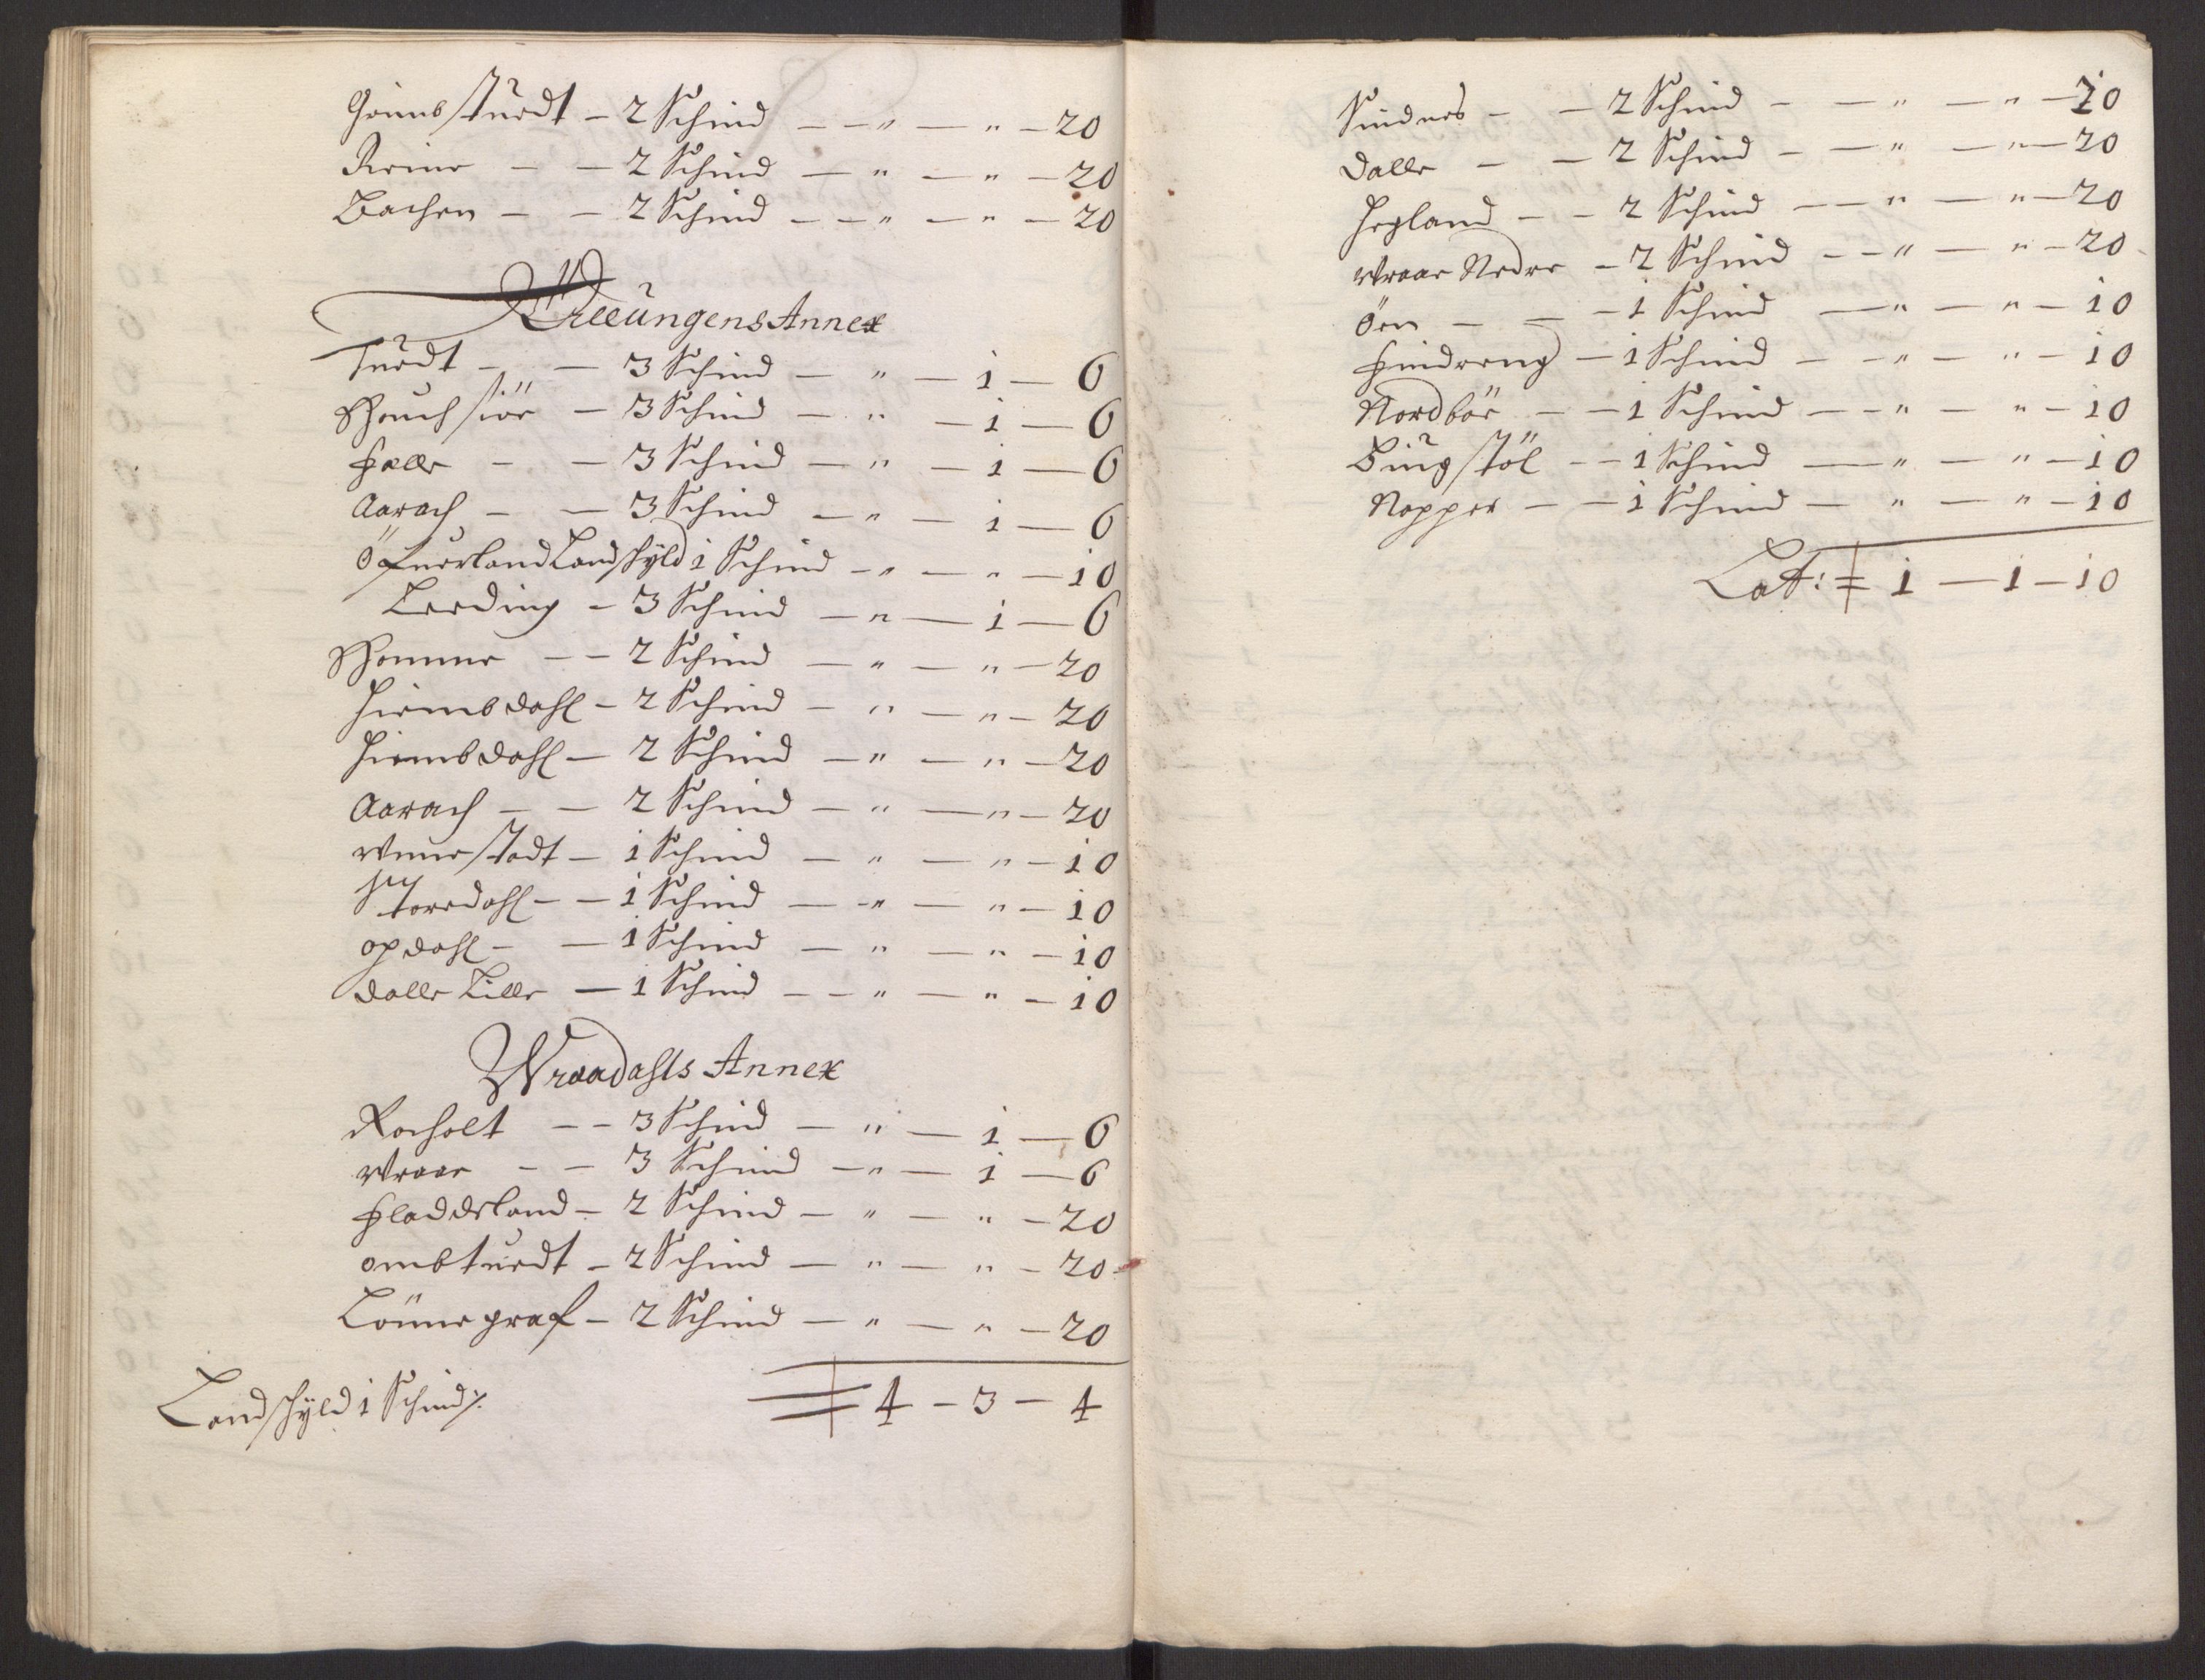 Giømbstuedt – 2 Schind – – " – " – 20
Reine – – 2 Schind – " – " – 20
Bachen – – 2 Schind – – " – " – 20
Treeungens Annex
Tuedt – – 3 Schind – " – 1 – 6
Houchsiöe – 3 Schind – " – 1 – 6
Felle – – 3 Schind – " – 1 – 6
Aarach – – 3 Schind – " – 1 – 6
Öfuerland Landschyld 1 Schind – " – " – 10
Lerding – 3 Schind – " – 1 – 6
Homme – – 2 Schind – " – " – 20
Hiembdahl – 2 Schind – " – " – 20
Hiembdahl – 2 Schind – " – " – 20
Aarach – – 2 Schind – " – " – 20
Wenestadt – 1 Schind – " – " – 10
Storedahl – – 1 Schind – – " – " – 10
opdahl – – 1 Schind – " – " – 10
Dalle Lille – 1 Schind – – " – " – 10
Wraadahls Annex
Rocholt – – 3 Schind – " – 1 – 6
Wraae – – 3 Schind – " – 1 – 6
Fladdeland – 2 Schind – " – " – 20
ombtuedt – 2 Schind – " – " – 20
Lönnegraf – 2 Schind – " – " – 20
Landschyld 1 Schind ⁒ 4 – 3 – 4
Sindnes – – 2 Schind – – " – " – 20
Dalle – – 2 Schind – – " – " – 20
Hegland – – 2 Schind – – " – " – 20
Wraae Nedre – 2 Schind – – " – " – 20
Öen – – – 1 Schind – " – " – 10
Findreng – 1 Schind – – " – " – 10
Nordböe – – 1 Schind – – " – " – 10
Bingstöl – – 1 Schind – " – " – 10
Napper – – 1 Schind – " – " – 10
Lat: 1 – 1 – 10